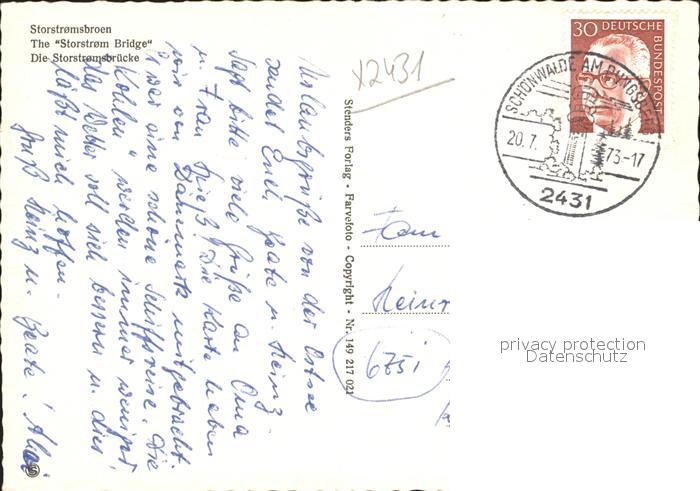 Storstrømsbroen
The "Storstrøm Bridge"
Die Storstrømsbrücke
Urlaubsgrüße von der Ostsee
sendet Euch Beate u. Heinz.
Sagt bitte viele Grüße an Oma
u. Frau Die Karte haben
wir von Dänemark mitgebracht.
war eine schöne Schiffsreise. Die
"Kohlen" werden immer weniger,
das Wetter soll sich bessern u. dies
läßt mich hoffen.
Gruß Heinz u. Beate!
Stenders Forlag - Farvefoto - Copyright - Nr. 149 217 021
X2431
30 DEUTSCHE
BUNDESPOST
SCHÖNWALDE AM BUNGSBERG
20.7. 73-17
2431
Fam
Heinr
6751
privacy protection
Datenschutz